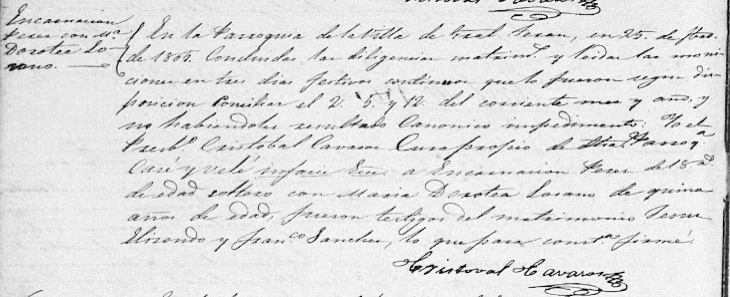 Encarnacion
Peres con Mª
Dorotea Lo-
sano.
En la Parroquia de la Villa de Gral Teran, en 25. de
de 186 . Concluidas las diligencias matrims. y leidas las moni-
ciones en tres dias festivos continuos que lo fueron segun dis-
posicion Conciliar el 2. 5. y 12 del corriente mes y año, y
no habiendoles resultado Canonico impedimento: Yo el
Presbo. Cristobal Cavazos Cura propio de Parroqª
Casé y velé infacie Ecce. a Encarnacion Peres de 18 aª
de edad soltero con Maria Dorotea Losano de quince
años de edad, fueron testigos del matrimonio Jesus
Elisondo y Franco Sanches, lo que para constª firmé.
Cristoval Cavazos